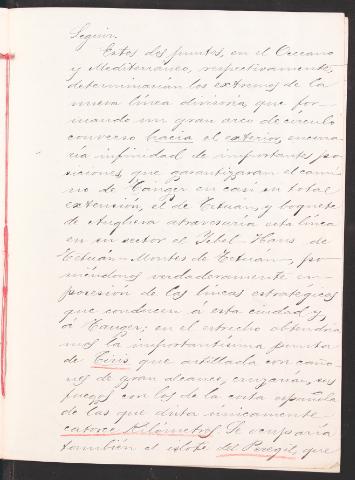 Seguin.
Estos dos puntos, en el Occeano
y Mediterraneo, respectivamente,
determinarian los extremos de la
nueva linea divisoria, que for-
mando un gran arco de circulo
converso hacia el exterior, encerra-
ria infinidad de importantes po-
siciones, que garantizaran el cami-
no de Tanger en casi su total
extensión, el de Tetuán, y boquete
de Anghera atravesaria esta linea
en su sector el Jebel-Haus de
Tetuán-Montes de Tetuan, po-
niéndonos verdaderamente en
posesión de las lineas estratégicas
que conducen á esta ciudad y
á Tanger; en el estrecho obtendria
mos la importantísima punta
de Ciris que artillada con caño-
nes de gran alcance, cruzarian, sus
fuegos con los de la costa española
de las que dista unicamente
catorce Kilómetros. Se ocuparia
también el islote del Peregil, que